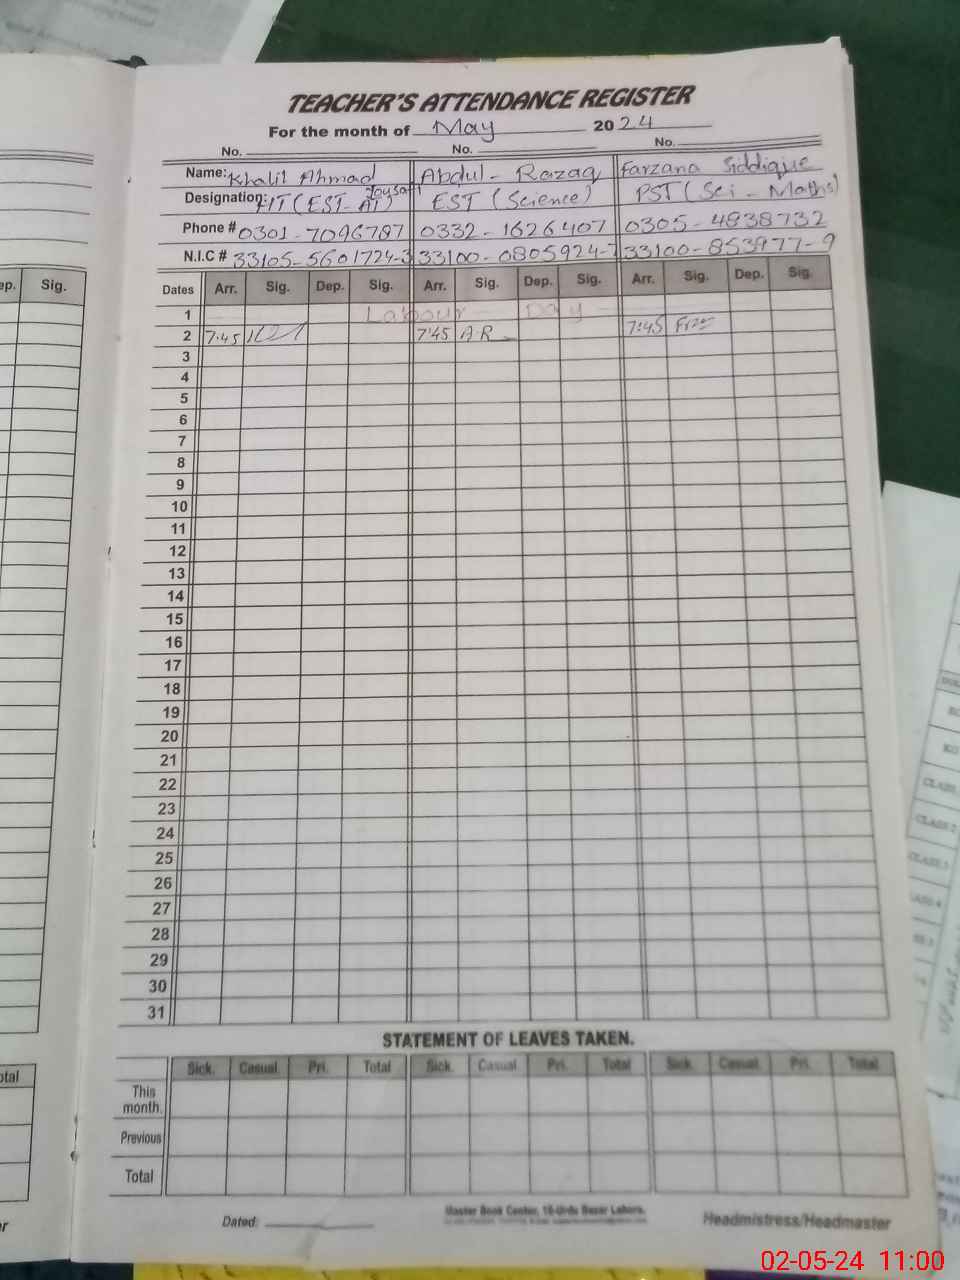 TEACHER'S ATTENDANCE REGISTER
For the month of May 2024
No. No. No.
Name: Khalil Ahmad Abdul - Razaq Farzana Siddique
Designation: (EST-AT) EST (Science) PST (Sci - Maths)
Phone # 0301-7096787 0332-1626407 0305-4838732
N.I.C # 33105-5601724-3 33100-0805924-7 33100-853977-9
ep. Sig. Dates Arr. Sig. Dep. Sig. Arr. Sig. Dep. Sig. Arr. Sig. Dep. Sig.
1 Labour Day
2 7:45 7:45 A.R 7:45
3
4
5
6
7
8
9
10
11
12
13
14
15
16
17
18
19
20
21
22
23
24
25
26
27
28
29
30
31
STATEMENT OF LEAVES TAKEN.
Sick. Casual Pri. Total Sick. Casual Pri. Total Sick. Casual Pri. Total
This month.
Previous
Total
Dated: Master Book Center, 16-Urdu Bazar Lahore. Headmistress/Headmaster
CLASS
CLASS 2
CLASS 3
02-05-24 11:00